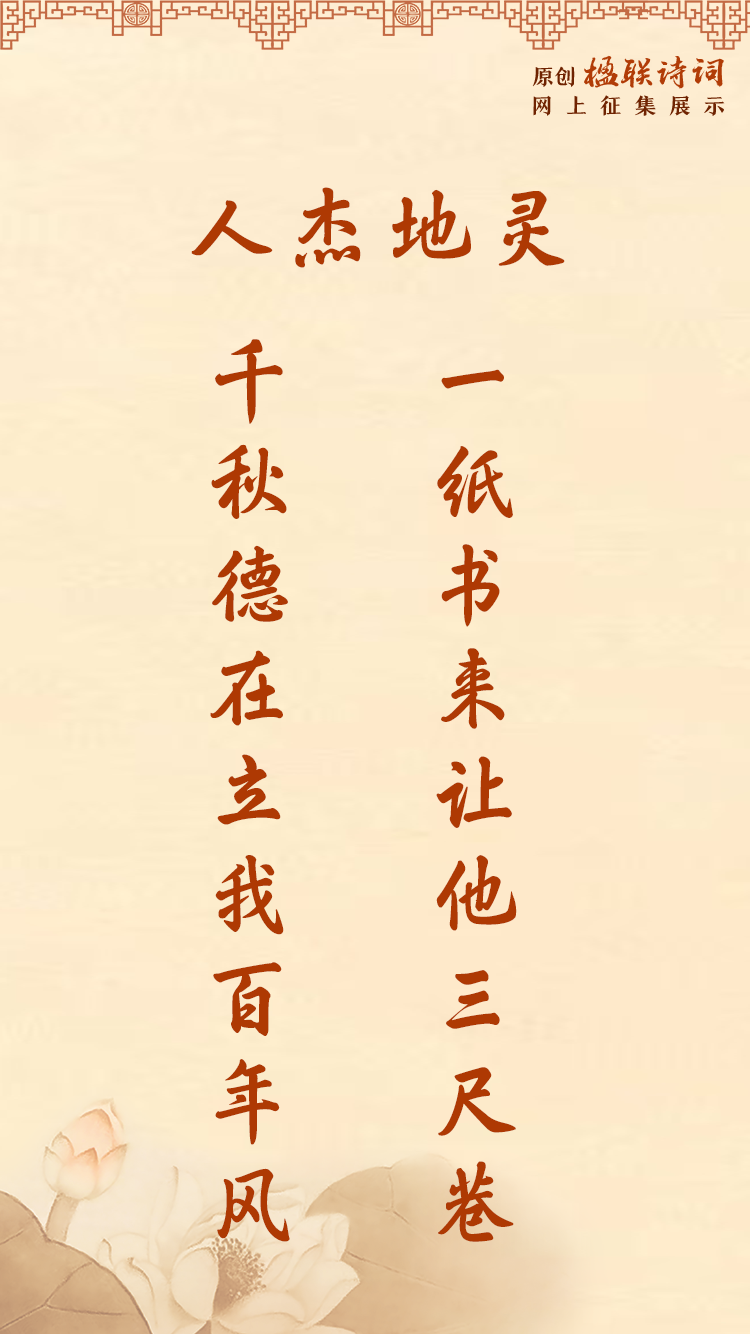 原创 楹联诗词
网上征集展示
人杰地灵
一纸书来让他三尺巷
千秋德在立我百年风